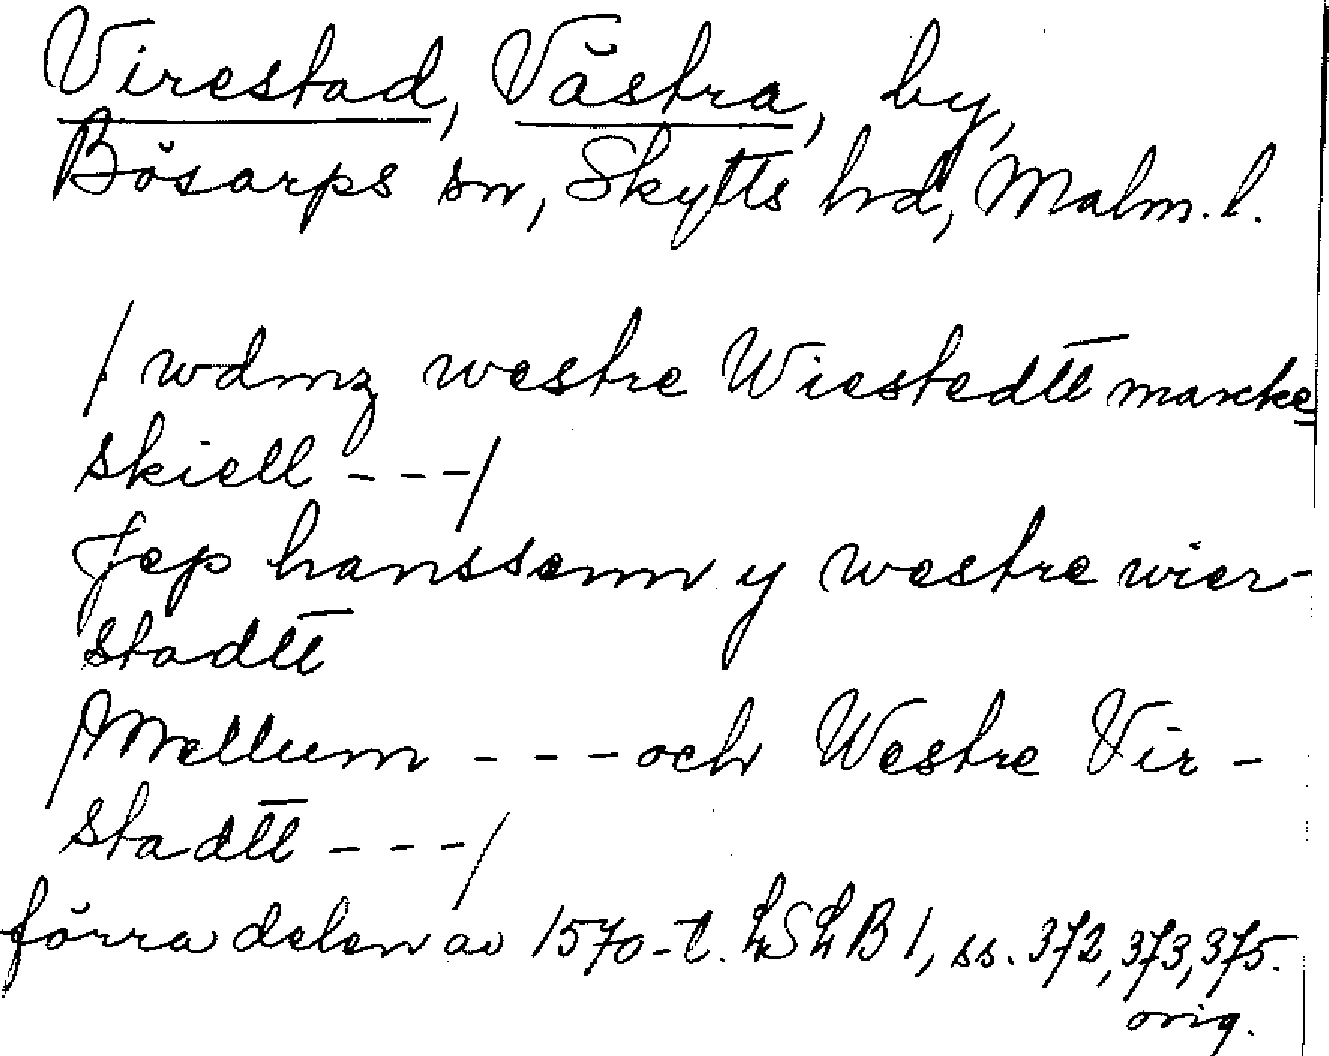 Virestad, Västra, by,
Bösarps sn, Skytts hd, Malm. l.
/ wdmz westre Wiestedtt marcke
skiell - - -/
Jep hanssenn y westre wier-
stadtt
/Mellum - - - och Westre Vir-
stadtt - - -/
förra delen av 1570-t. LSLB 1, ss. 372, 373, 375.
orig.